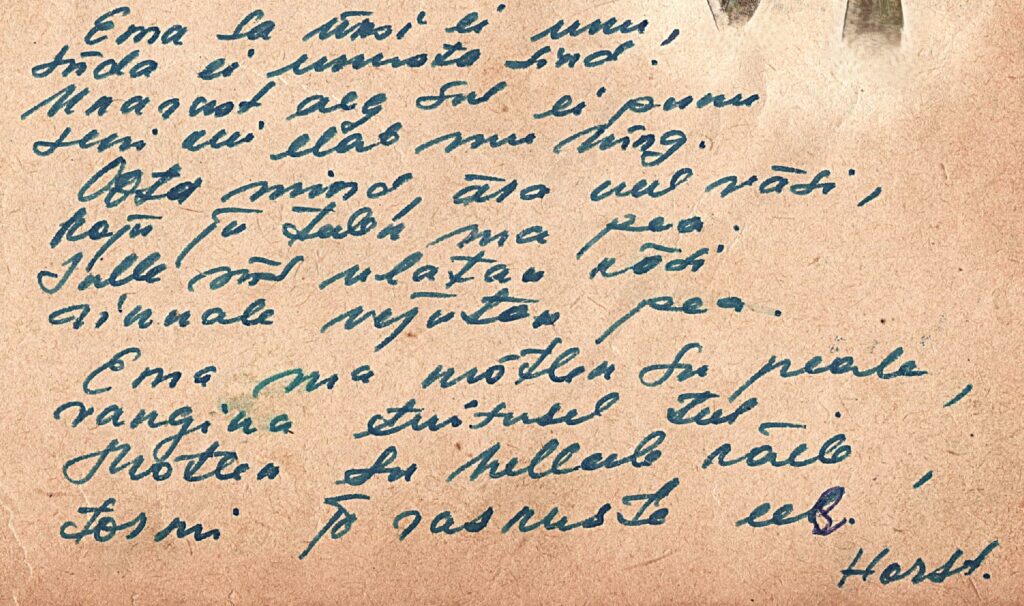 Ema sa üksi ei unu,
süda ei unusta sind.
Unarust aeg sul ei punu
seni kui elab mu hing.
Oota mind, ära kul väsi,
koju ju tulen ma pea.
Sulle siis ulatan käsi
rinnale vajutan pea.
Ema ma mõtlen su peale,
vangina tuitusel tul
Mõtlen su hellale käele,
tormi ja raskuste eel.
Horst.